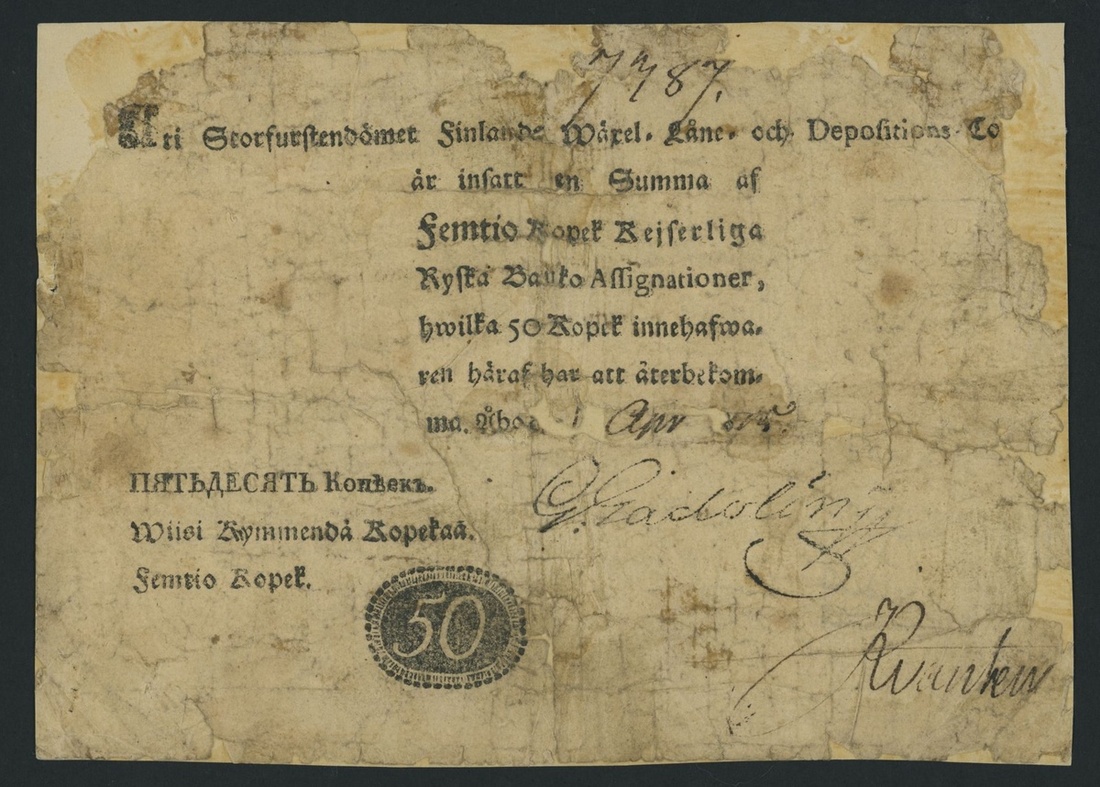 7787.
Uti Storfurstendömet Finlands Wäxel- Låne- och Depositions-Co
är insatt en Summa af
Femtio Kopek Kejserliga
Ryska Banko Assignationer,
hwilka 50 Kopek innehafwa-
ren häraf har att återbekom-
ma. Åbo Apr
ПЯТЬДЕСЯТЬ Копѣекъ.
Wiisi Kymmendä Kopekaa.
Femtio Kopek.
50
G. Gadolin
Kvanten